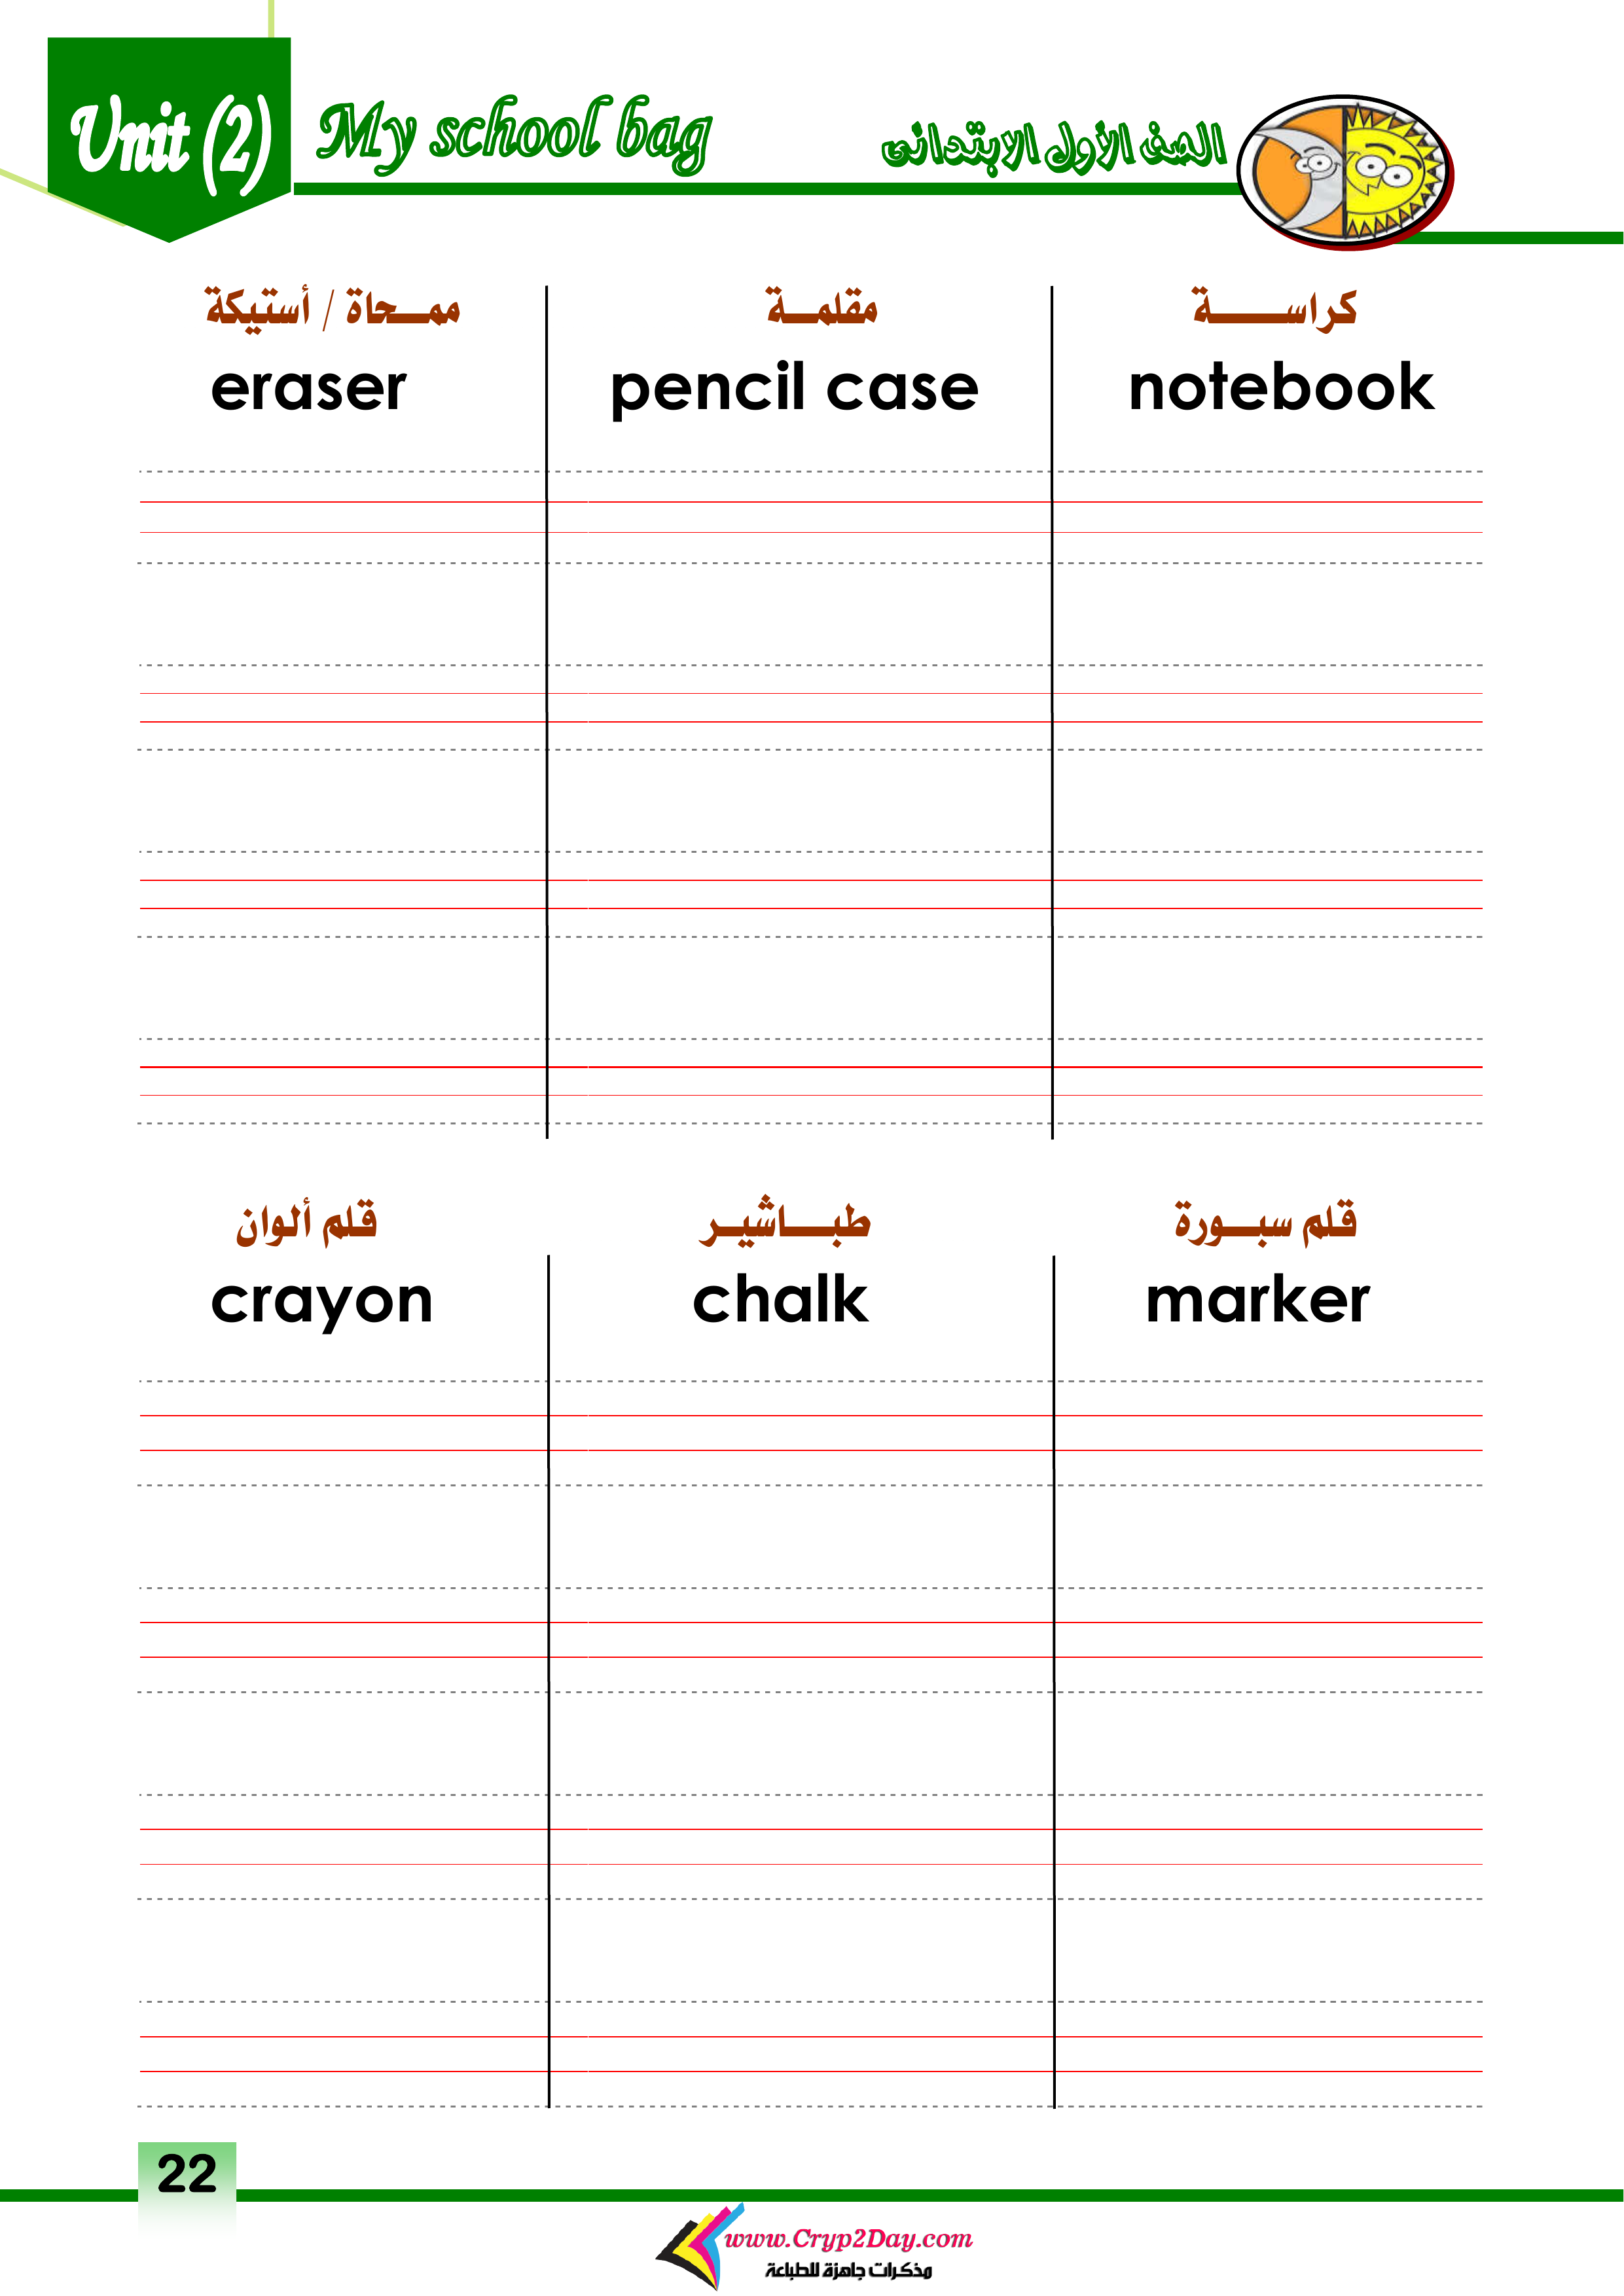 Unit (2) My school bag الصف الأول الابتدائى
ممحاة / أستيكة مقلمة كراسة
eraser pencil case notebook
قلم ألوان طباشير قلم سبورة
crayon chalk marker
22
www.Cryp2Day.com
مذكرات جاهزة للطباعة